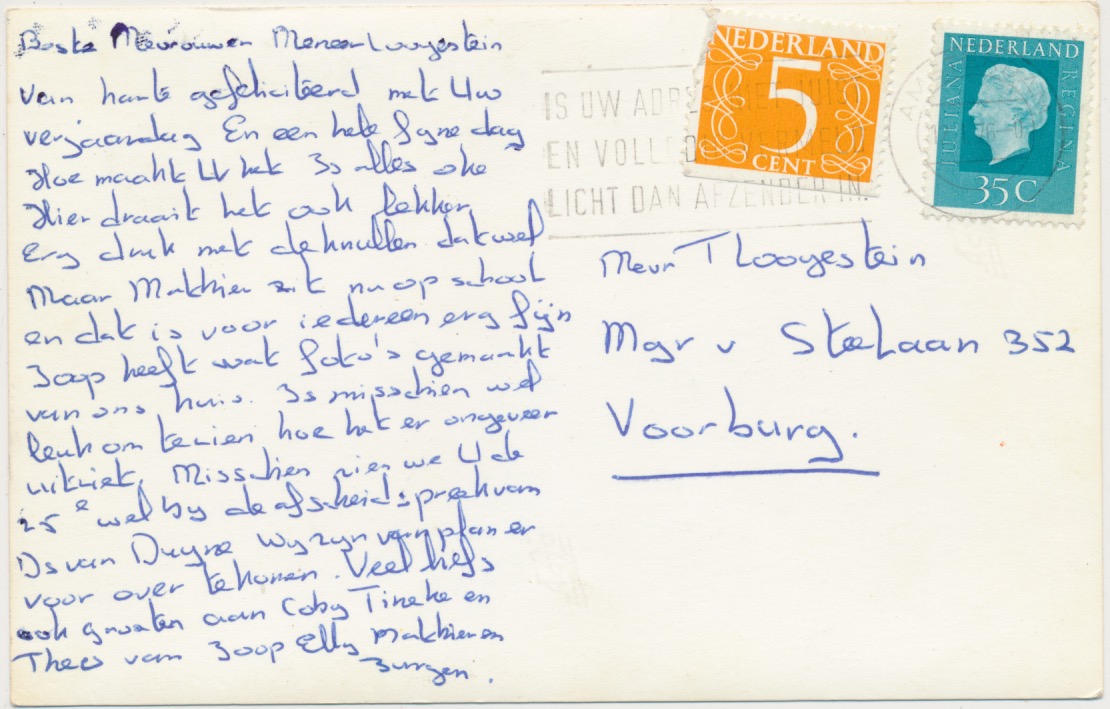 Beste Mevrouw en Meneer Looyestein
Van harte gefeliciteerd met Uw
verjaardag En een hele fyne dag
Hoe maakt U het Is alles oke
Hier draait het ook lekker
Erg druk met de knullen dat wel
Maar Matthier zit nu op school
en dat is voor iedereen erg fijn
Joop heeft wat foto's gemaakt
van ons huis. Is misschien wel
leuk om te zien hoe het er ongeveer
uitziet. Misschien zien we U de
25e wel by de afscheidspreek van
Ds van Duyne Wy zyn van plan er
voor over te komen. Veel liefs
ook groeten aan Coby Tineke en
Theo van Joop Elly Matthier en
Jurgen.
NEDERLAND
5
CENT
NEDERLAND
JULIANA
REGINA
35 C
IS UW ADRES NIET JUIST
EN VOLLEDIG VERMELD
LICHT DAN AFZENDER IN.
Mevr T Looyestein
Mgr v Steelaan 352
Voorburg.